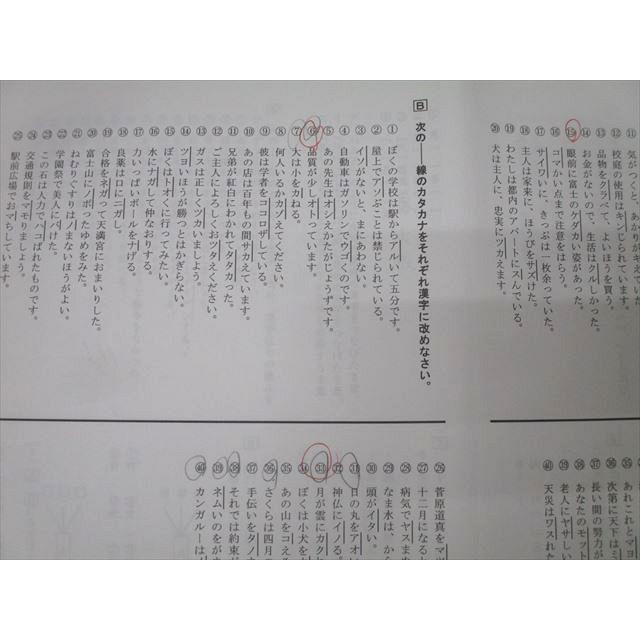 ⑪ 気がつくと、
⑫ 校庭の使用はキンじられています。
⑬ 品物をクラべて、よいほうを買う。
⑭ お金がないので、生活はクルしかった。
⑮ 眼前に富士のケダカい姿があった。
⑯ コマかい点まで注意をはらう。
⑰ サイワいに、きっぷは一枚余っていた。
⑱ 主人は家来に、ほうびをサズけた。
⑲ わたしは都内のアパートにスんでいる。
⑳ 犬は主人に、忠実にツカえます。
B 次の――線のカタカナをそれぞれ漢字に改めなさい。
① ぼくの学校は駅からアルいて五分です。
② 屋上でアソぶことは禁じられている。
③ イソがないと、まにあわない。
④ 自動車はガソリンでウゴくのです。
⑤ あの先生はオシえかたがじょうずです。
⑥ 品質が少しオトっています。
⑦ 大は小をカねる。
⑧ 何人いるかカゾえてください。
⑨ 彼は学者をココロザしている。
⑩ あの店は百年もの間サカえています。
⑪ 兄弟が紅白にわかれてタタカった。
⑫ ご主人によろしくおツタえください。
⑬ ガスは正しくツカいましょう。
⑭ ツヨいほうが勝つとはかぎらない。
⑮ ぼくはトオくに行ってみたい。
⑯ 水にナガして仲なおりする。
⑰ 力いっぱいボールをナげる。
⑱ 良薬は口にニガし。
⑲ 合格をネガって天満宮におまいりした。
⑳ 富士山にノボったゆめをみた。
㉑ ねむりぐすりはノまないほうがよい。
㉒ 学園祭で美人にバけた。
㉓ この石は人力でハコばれたものです。
㉔ 交通規則をマモりましょう。
㉕ 駅前広場でおマちしています。
㉟ あれこれとマヨ
㊱ 次第に天下はミ
㊲ 長い間の努力が
㊳ あなたのモット
㊴ 老人にヤサしい
㊵ 天災はワスれた
㉖ 菅原道真をマツ
㉗ 十二月になると
㉘ 病気でヤスまな
㉙ なま水は、から
㉚ 頭がイタい。
㉛ 日の丸をアオい
㉜ 神仏にイノる。
㉝ 月が雲にカクれ
㉞ ぼくは小犬を
㉟ あの山をコえる
㊱ さくらは四月の
㊲ 手伝いをタノま
㊳ それでは約束が
㊴ ネムいのをがま
㊵ カンガルーは